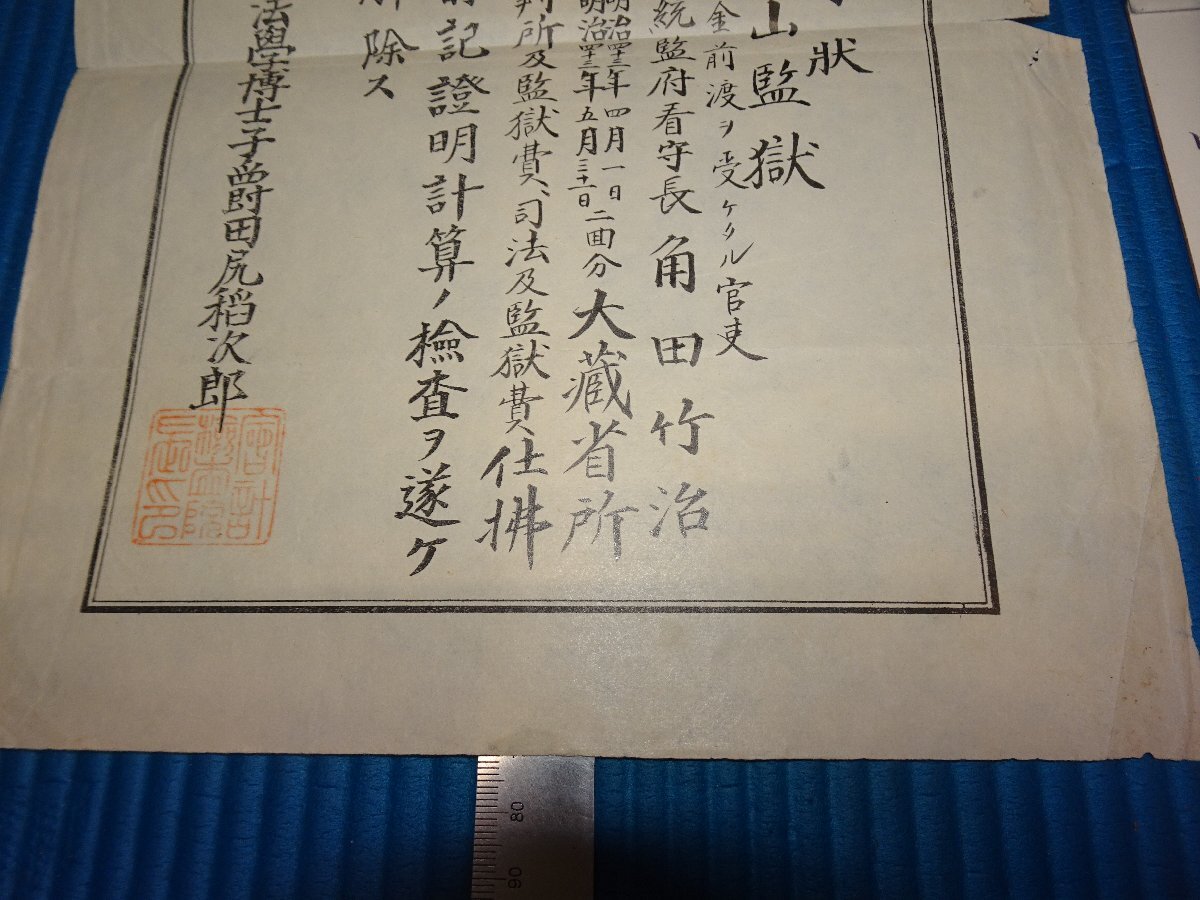 狀
山監獄
金前渡ヲ受ケタル官吏
統監府看守長角田竹治
明治四十三年四月一日
明治四十三年五月三十一日
二回分大蔵省所
判所及監獄費、司法及監獄費仕拂
前記證明計算ノ檢査ヲ遂ケ
解除ス
法學博士子爵田尻稻次郎
會計檢査院長之印
80
90